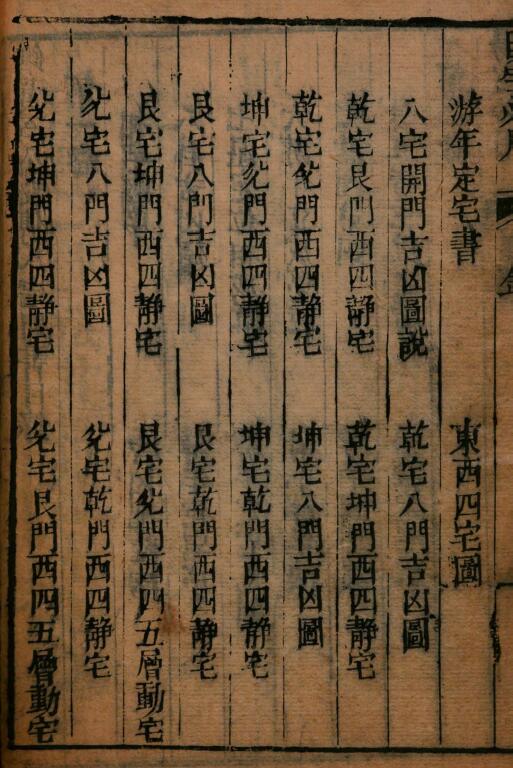 游年定宅書　東西四宅圖
八宅開門吉凶圖說　乾宅八門吉凶圖
乾宅艮門西四静宅　乾宅坤門西四静宅
乾宅兌門西四静宅　坤宅八門吉凶圖
坤宅兌門西四静宅　坤宅乾門西四静宅
艮宅八門吉凶圖　艮宅乾門西四静宅
艮宅坤門西四静宅　艮宅兌門西四五層動宅
兌宅八門吉凶圖　兌宅乾門西四静宅
兌宅坤門西四静宅　兌宅艮門西四五層動宅